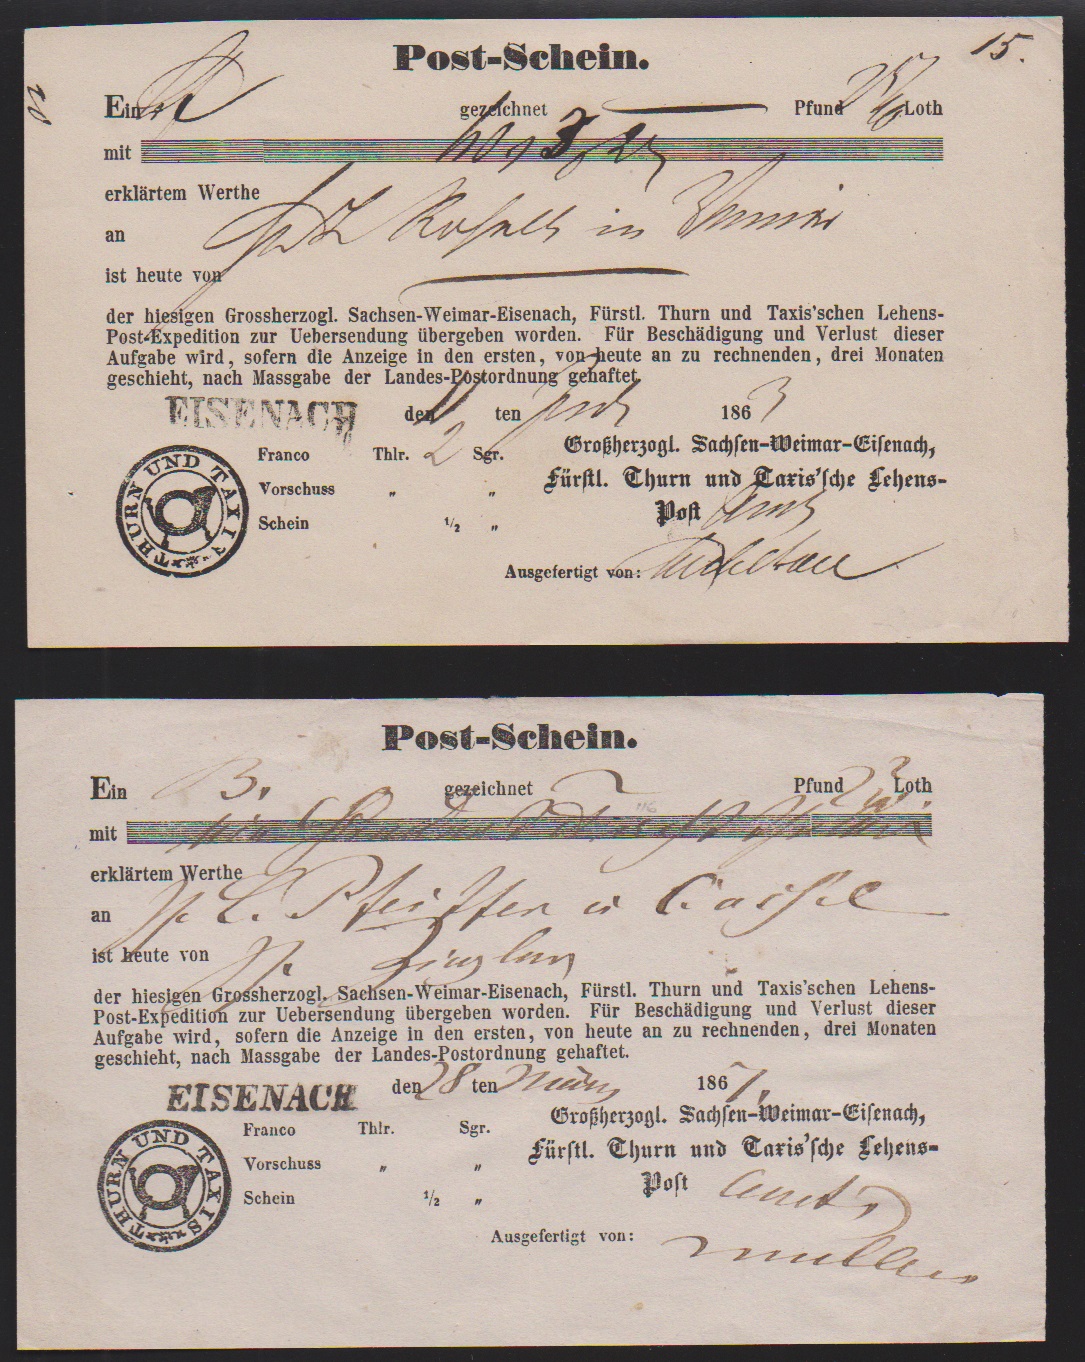 Post-Schein.
15.
Ein gezeichnet Pfund Loth
mit
erklärtem Werthe
an in
ist heute von
der hiesigen Grossherzogl. Sachsen-Weimar-Eisenach, Fürstl. Thurn und Taxis'schen Lehens-
Post-Expedition zur Uebersendung übergeben worden. Für Beschädigung und Verlust dieser
Aufgabe wird, sofern die Anzeige in den ersten, von heute an zu rechnenden, drei Monaten
geschieht, nach Massgabe der Landes-Postordnung gehaftet.
EISENACH den 11 ten 1863
Franco Thlr. 2 Sgr. Großherzogl. Sachsen-Weimar-Eisenach,
Vorschuss „ „ Fürstl. Thurn und Taxis'sche Lehens-
Schein ½ „ Post Amt
THURN UND TAXIS
Ausgefertigt von:
Post-Schein.
Ein B. gezeichnet Pfund 23. Loth
mit
erklärtem Werthe
an L. Pfeiffer in Cassel
ist heute von Ziegler
der hiesigen Grossherzogl. Sachsen-Weimar-Eisenach, Fürstl. Thurn und Taxis'schen Lehens-
Post-Expedition zur Uebersendung übergeben worden. Für Beschädigung und Verlust dieser
Aufgabe wird, sofern die Anzeige in den ersten, von heute an zu rechnenden, drei Monaten
geschieht, nach Massgabe der Landes-Postordnung gehaftet.
EISENACH den 28 ten März 1867.
Franco Thlr. Sgr. Großherzogl. Sachsen-Weimar-Eisenach,
Vorschuss „ „ Fürstl. Thurn und Taxis'sche Lehens-
Schein ½ „ Post Amt
THURN UND TAXIS
Ausgefertigt von: Müller